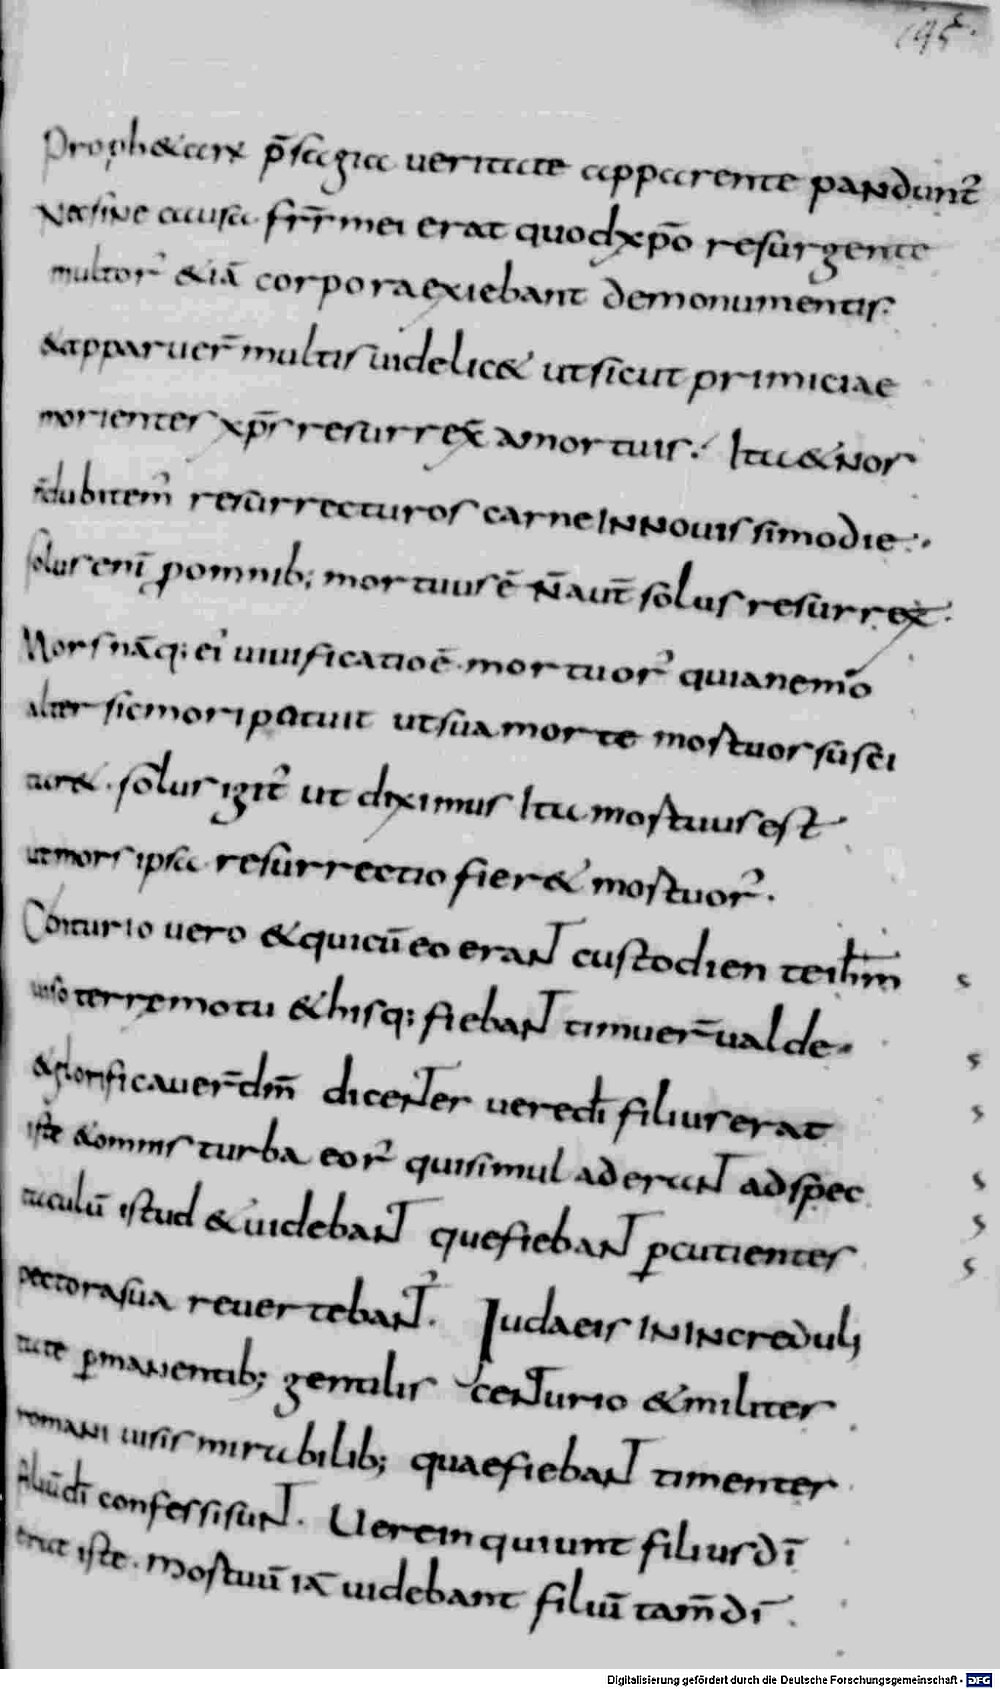 195.
Prophetarx p̄sagia ueritate apparente pandunt᷑
Nec sine causa. fr̄r mei erat quod xp̄o resurgente
multor᷑ &iā corpora exiebant de monumentis.
&apparuer̄ multis uidelic& ut sicut primiciae
morientes xp̄s resurrex̄ amortuis. Ita & nos
n̄ dubitem᷑ resurrecturos carne in nouissimo die.
Solus enī p omnib; mortuus ē N̄ aut̄ solus resurrex̄.
Mors nāq; ei᷑ uiuificatio ē. mortuor᷑ quia nemo
alter sic mori potuit ut sua morte mortuos susci
tar&. Solus igit᷑ ut diximus Ita mortuus est
ut mors ipsa resurrectio fier& mortuor᷑.
Centurio uero &qui cū eo erant custodientes ih̄m
uiso terremotu & hisq; fiebant timuer̄ ualde.
&glorificauer̄ dm̄ dicentes uere dī filius erat
iste &omnis turba eor᷑ qui simul aderant ad spec
taculū istud &uidebant que fiebant pcutientes
pectora sua reuertebant᷑. Judaeis in increduli
tate pmanentib; gentilis centurio &milites
romani uisis mirabilib; quae fiebant timentes
filiū dī confessi sunt. Uere inquiunt filius dī
erat iste. mortuū iā uidebant filiū tam̄ dī.
Digitalisierung gefördert durch die Deutsche Forschungsgemeinschaft - DFG